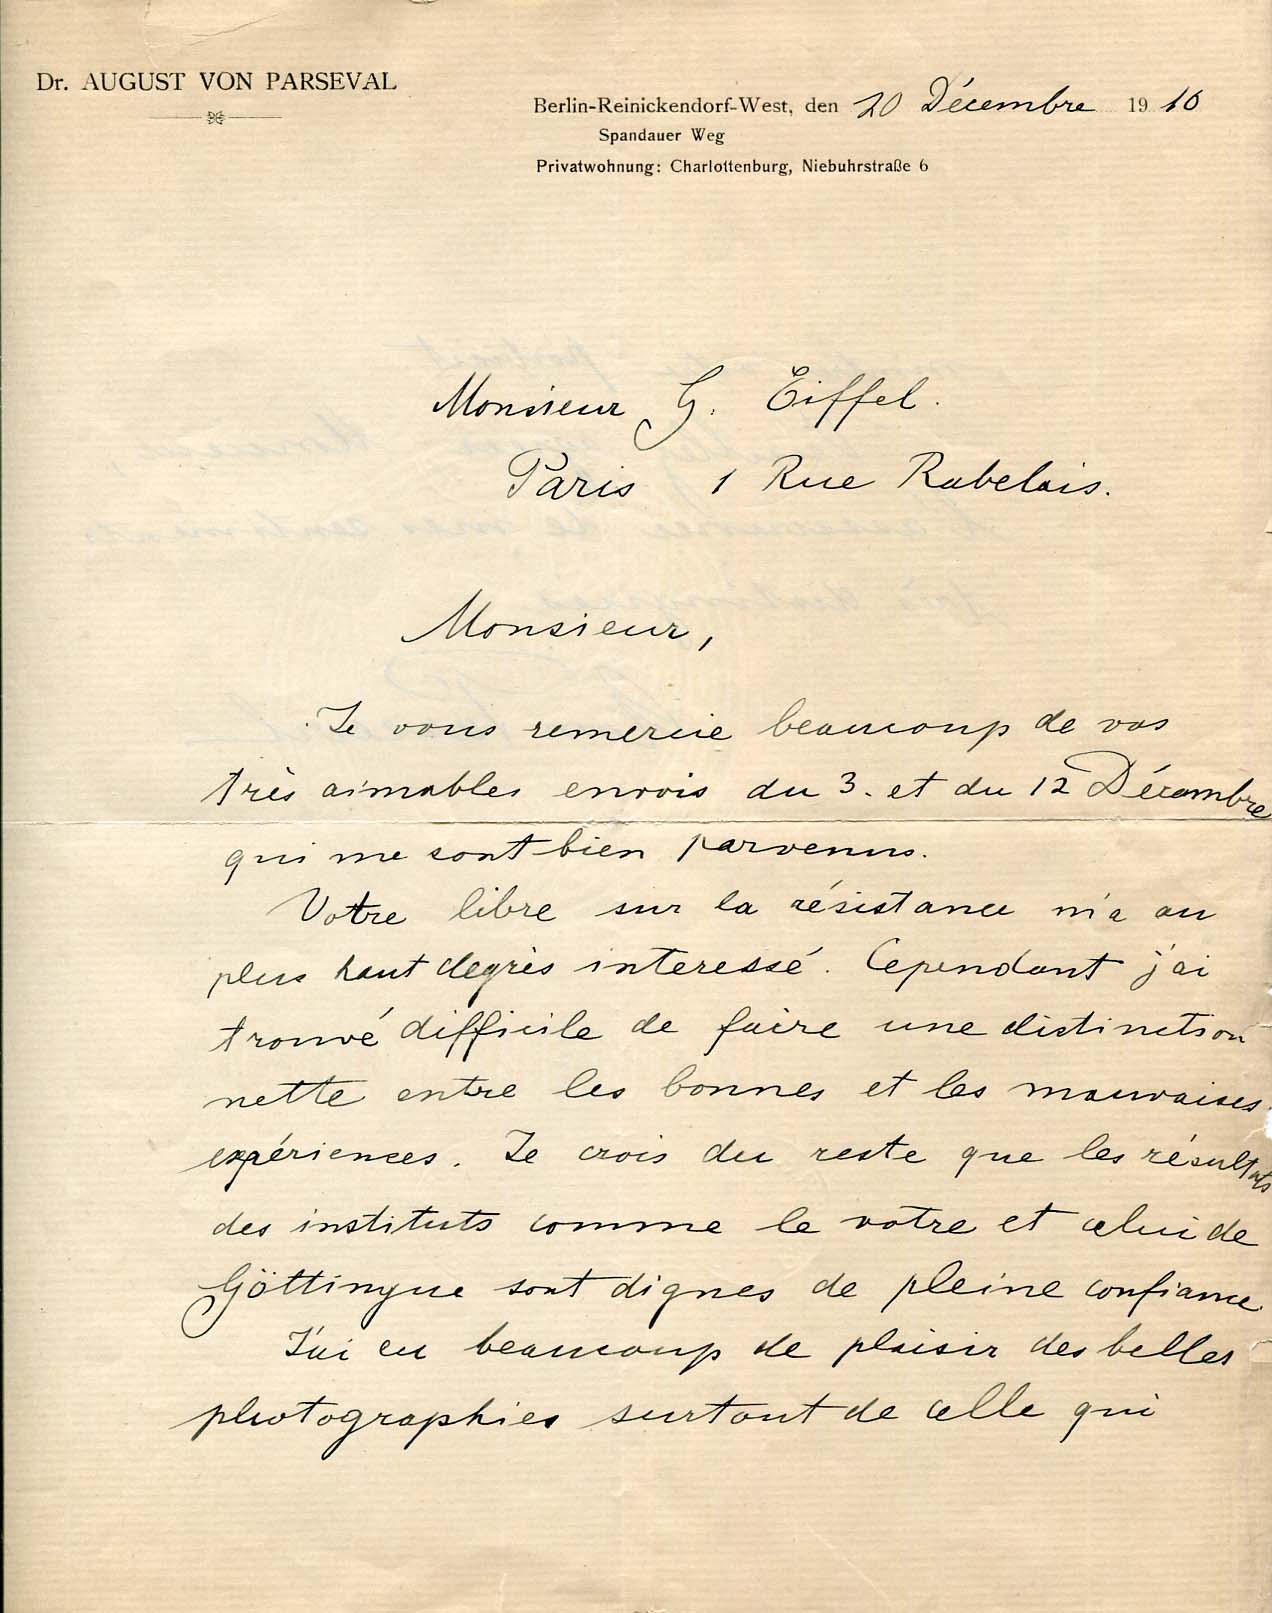 Dr. AUGUST VON PARSEVAL
Berlin-Reinickendorf-West, den 20 Décembre 1910
Spandauer Weg
Privatwohnung: Charlottenburg, Niebuhrstraße 6
Monsieur G. Eiffel.
Paris 1 Rue Rabelais.
Monsieur,
Je vous remercie beaucoup de vos
très aimables envois du 3. et du 12 Décembre
qui me sont bien parvenus.
Votre libre sur la résistance m'a au
plus haut degrès interessé. Cependant j'ai
trouvé difficile de faire une distinction
nette entre les bonnes et les mauvaises
expériences. Je crois du reste que les résultats
des instituts comme le votre et celui de
Göttingue sont dignes de pleine confiance.
J'ai eu beaucoup de plaisir des belles
photographies surtout de celle qui